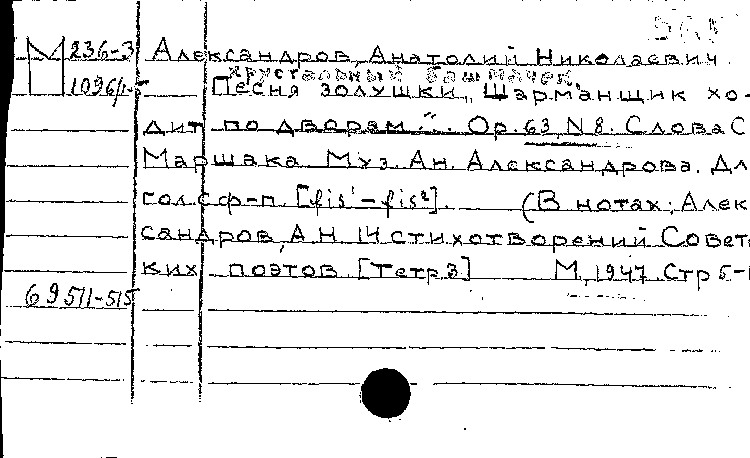 М 236-3 Александров, Анатолий Николаевич.
хрустальный башмачек.
1096/1-5 Песня золушки „Шарманщик хо-
дит по дворам". Ор. 63, N 8. Слова С
Маршака Муз. Ан. Александрова. Дл
гол. с ф-п. [fis¹-fis²]. (В нотах: Алек
сандров, А.Н. 14 стихотворений Совет
ких поэтов [Тетр. 3] М, 1947 Стр 5-
69 511-515